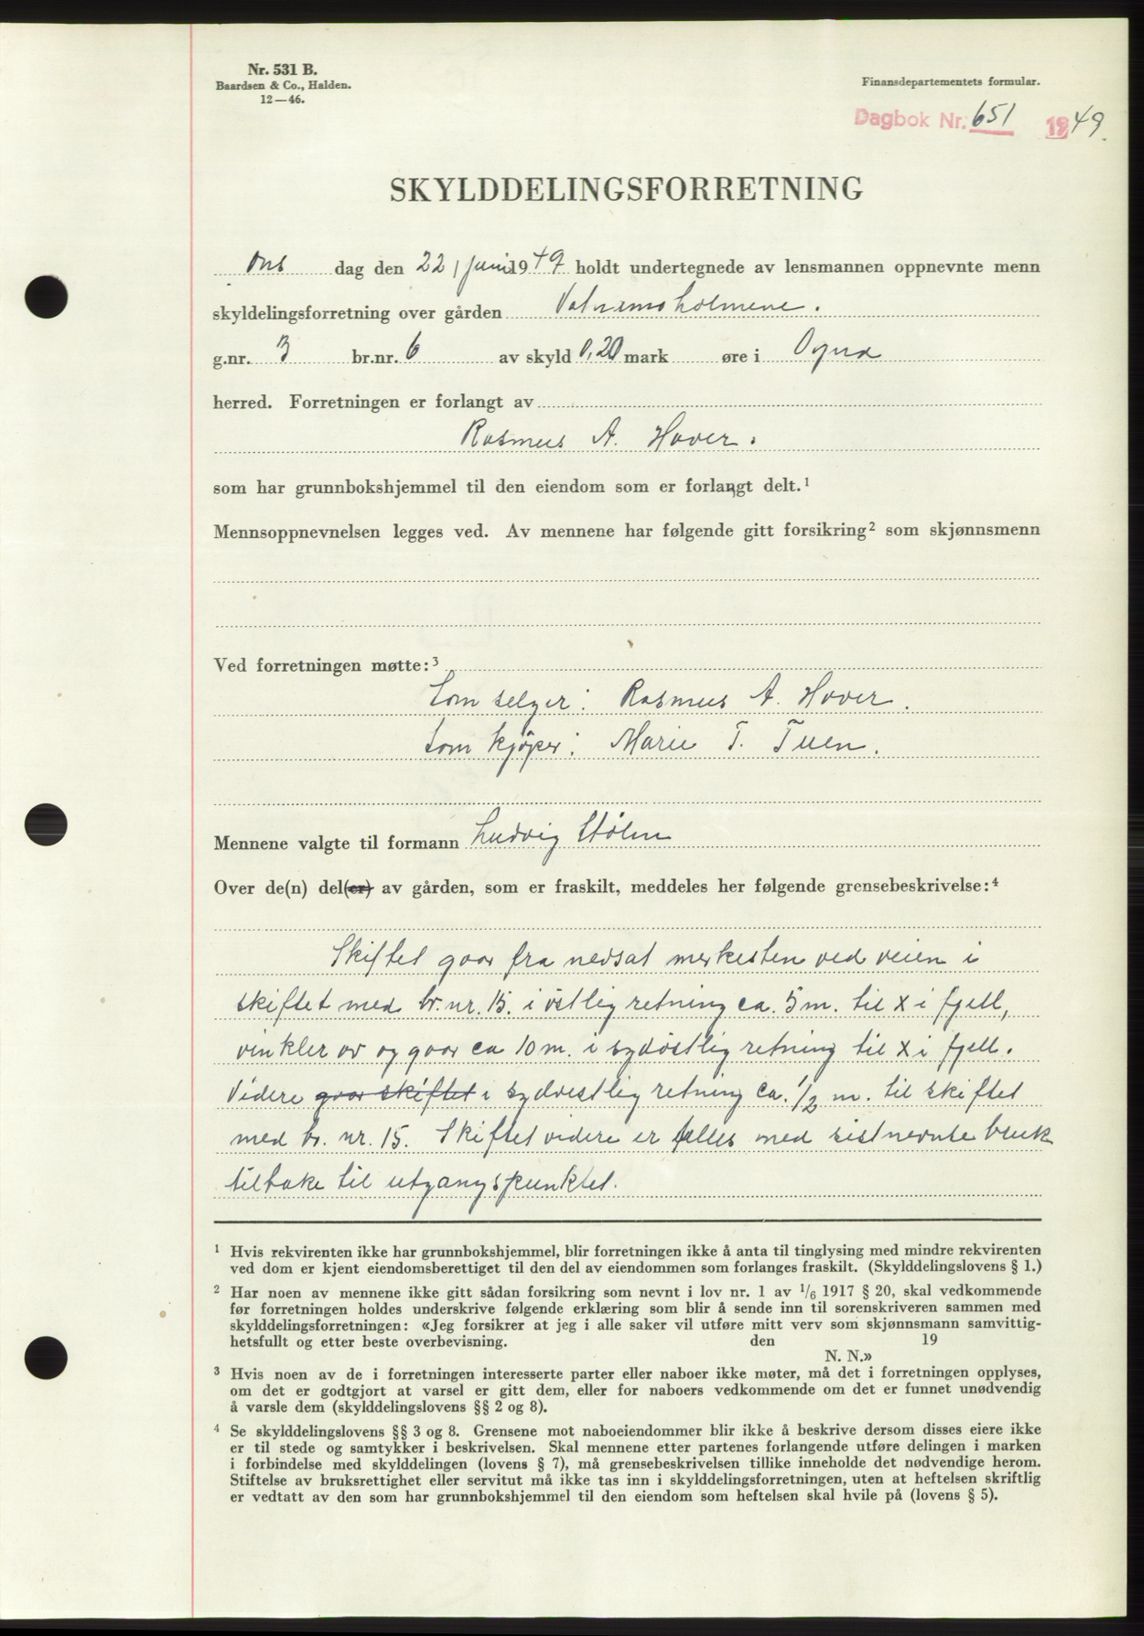 Nr. 531 B.
Baardsen & Co., Halden.
12—46.
Finansdepartementets formular.
Dagbok Nr. 651 1949.
SKYLDDELINGSFORRETNING
Ons dag den 22/juni 1949 holdt undertegnede av lensmannen oppnevnte menn
skyldelingsforretning over gården Vatnemoholmene.
g.nr. 3 br.nr. 6 av skyld 0,20 mark øre i Ogna
herred. Forretningen er forlangt av
Rasmus A. Hover.
som har grunnbokshjemmel til den eiendom som er forlangt delt.¹
Mennsoppnevnelsen legges ved. Av mennene har følgende gitt forsikring² som skjønnsmenn
Ved forretningen møtte:³
Som selger: Rasmus A. Hover.
Som kjøper: Marie T. Tuen.
Mennene valgte til formann Ludvig Stølen
Over de(n) del(er) av gården, som er fraskilt, meddeles her følgende grensebeskrivelse:⁴
Skiftet gaar fra nedsat merkesten ved veien i
skiftet med br. nr. 15. i østlig retning ca. 5 m. til X i fjell,
vinkler av og gaar ca 10 m. i sydøstlig retning til X i fjell.
Videre gaar skiftet i sydvestlig retning ca. 1/2 m. til skiftet
med br. nr. 15. Skiftet videre er felles med sistnevnte bruk
tilbake til utgangspunktet.
¹ Hvis rekvirenten ikke har grunnbokshjemmel, blir forretningen ikke å anta til tinglysing med mindre rekvirenten
ved dom er kjent eiendomsberettiget til den del av eiendommen som forlanges fraskilt. (Skylddelingslovens § 1.)
² Har noen av mennene ikke gitt sådan forsikring som nevnt i lov nr. 1 av ¹/₆ 1917 § 20, skal vedkommende
før forretningen holdes underskrive følgende erklæring som blir å sende inn til sorenskriveren sammen med
skylddelingsforretningen: «Jeg forsikrer at jeg i alle saker vil utføre mitt verv som skjønnsmann samvittig-
hetsfullt og etter beste overbevisning. den 19
N. N.»
³ Hvis noen av de i forretningen interesserte parter eller naboer ikke møter, må det i forretningen opplyses,
om det er godtgjort at varsel er gitt dem, eller for naboers vedkommende om det er funnet unødvendig
å varsle dem (skylddelingslovens §§ 2 og 8).
⁴ Se skylddelingslovens §§ 3 og 8. Grensene mot naboeiendommer blir ikke å beskrive dersom disses eiere ikke
er til stede og samtykker i beskrivelsen. Skal mennene etter partenes forlangende utføre delingen i marken
i forbindelse med skylddelingen (lovens § 7), må grensebeskrivelsen tillike inneholde det nødvendige herom.
Stiftelse av bruksrettighet eller servitut må ikke tas inn i skylddelingsforretningen, uten at heftelsen skriftlig
er vedtatt av den som har grunnbokshjemmel til den eiendom som heftelsen skal hvile på (lovens § 5).